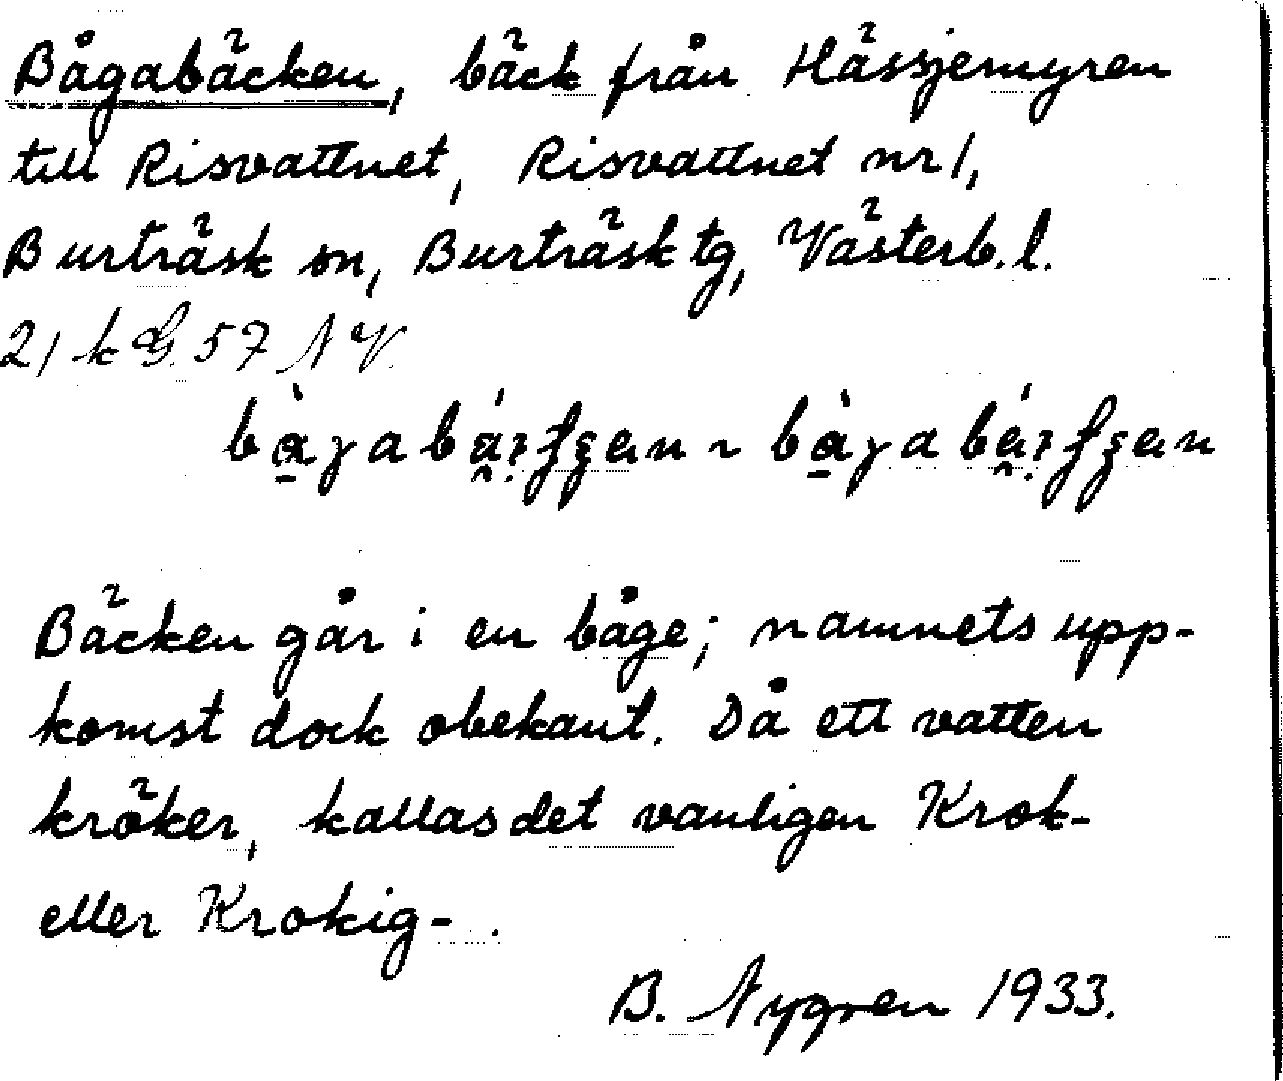 Bågabäcken, bäck från Hässjemyren
till Risvattnet, Risvattnet nr 1,
Burträsk sn, Burträsk tg, Västerb. l.
2) k G. 57 N V.
Bäcken går i en båge; namnets upp-
komst dock obekant. Då ett vatten
kröker, kallas det vanligen Krok-
eller Krokig- .
B. Nygren 1933.